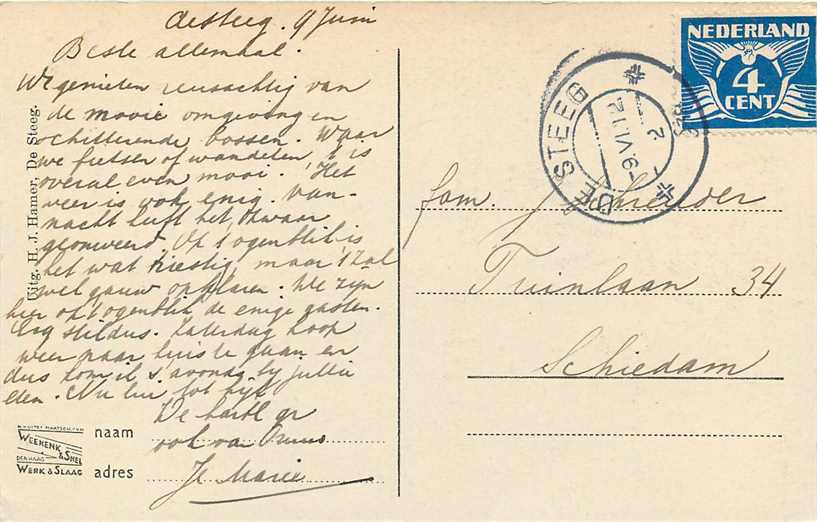 de Steeg. 9 Juni
Beste allemaal.
We genieten van
de mooie omgeving en
schitterende bossen. Waar
we fietsen of wandelen, 't is
overal even mooi. Het
weer is ook enig. Van-
nacht heeft het zwaar
geonweerd. Op 't ogenblik is
het wat riestig, maar 't zal
wel gauw opklaren. We zijn
hier op 't ogenblik de enige gasten.
Erg stil dus. Zaterdag hoop
weer naar huis te gaan en
dus kom ik 's avonds bij jullie
eten. Nu lui, tot kijk
De hartl. gr
ook van
Je Marie
Uitg. H. J. Hamer, De Steeg.
WEENENK & SNEL
DEN HAAG
WERK & SLAAG
naam
adres
NEDERLAND
4
CENT
DE STEEG
-9.VI.
2
Fam.
Tuinlaan 34
Schiedam